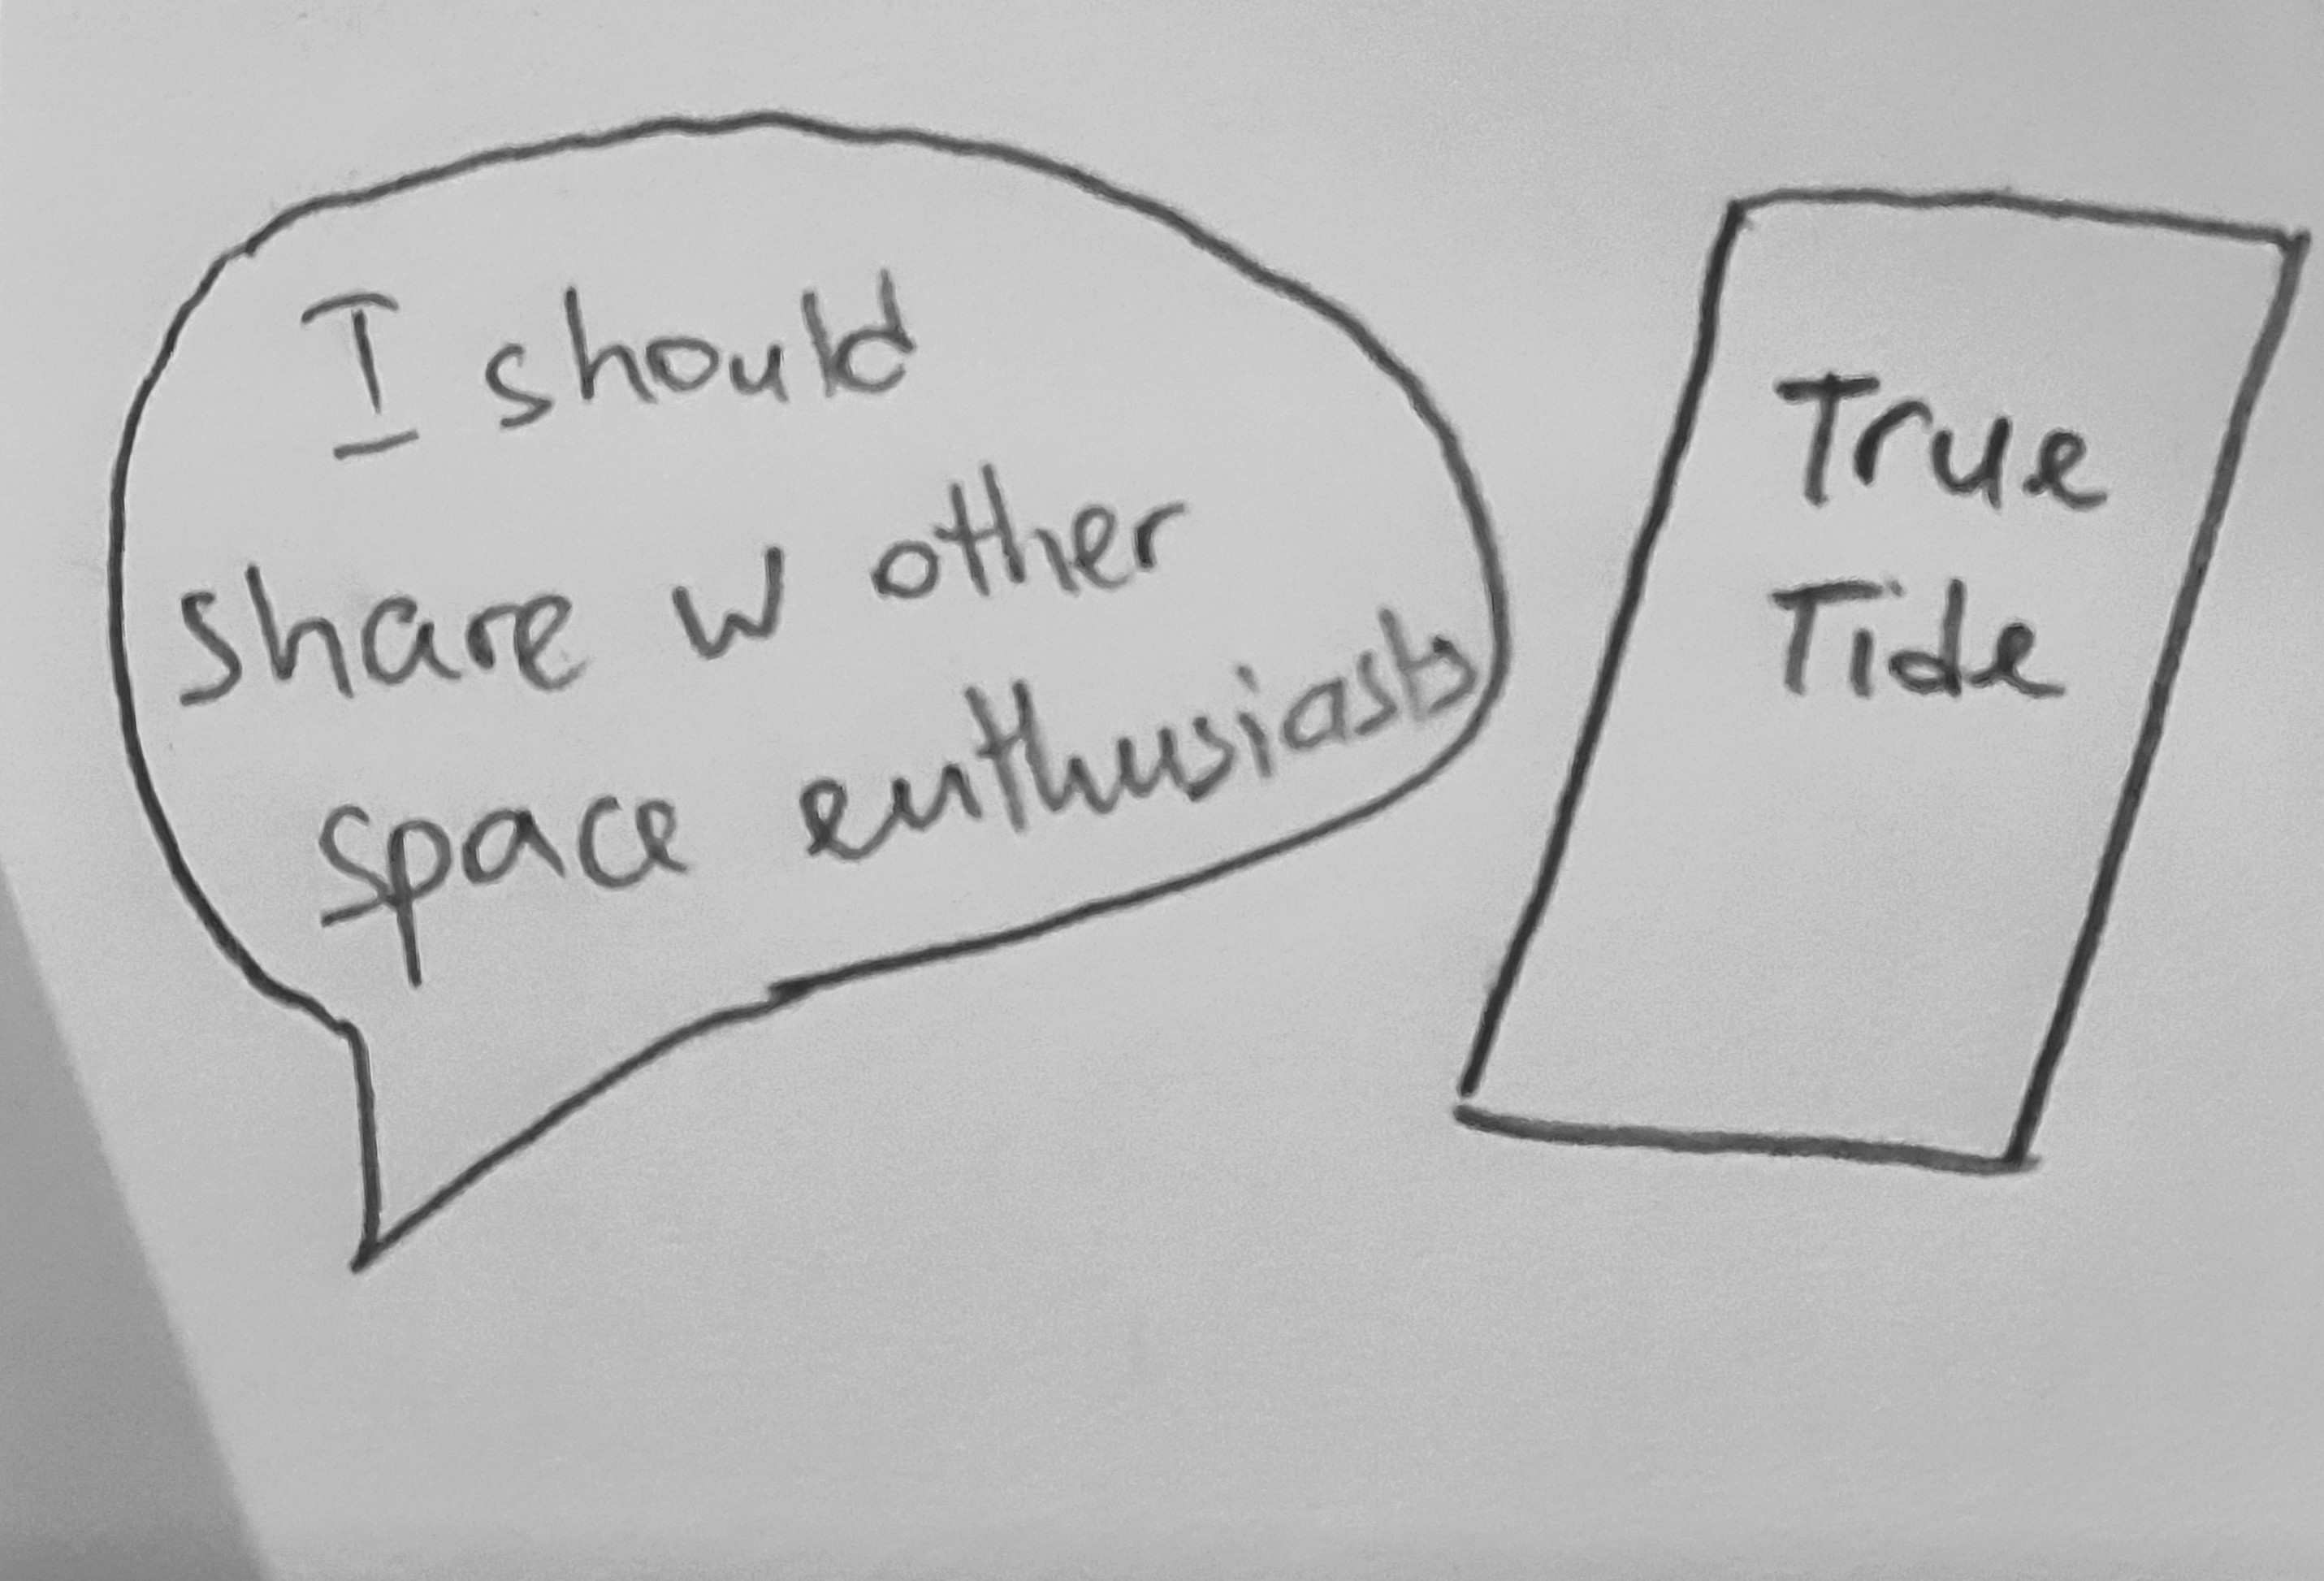 I should
share w other
space enthusiasts
True
Tide